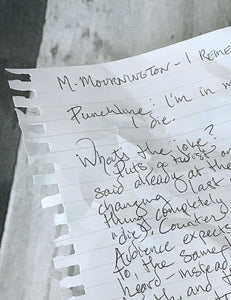 M. MOURNINGTON - I REME
Punchline: I'm in m
I die.
What's the joke?
Puts a twist on
said already at the
changing last
thing completely
"die." Counter
Audience expects
to the same
heard - instead